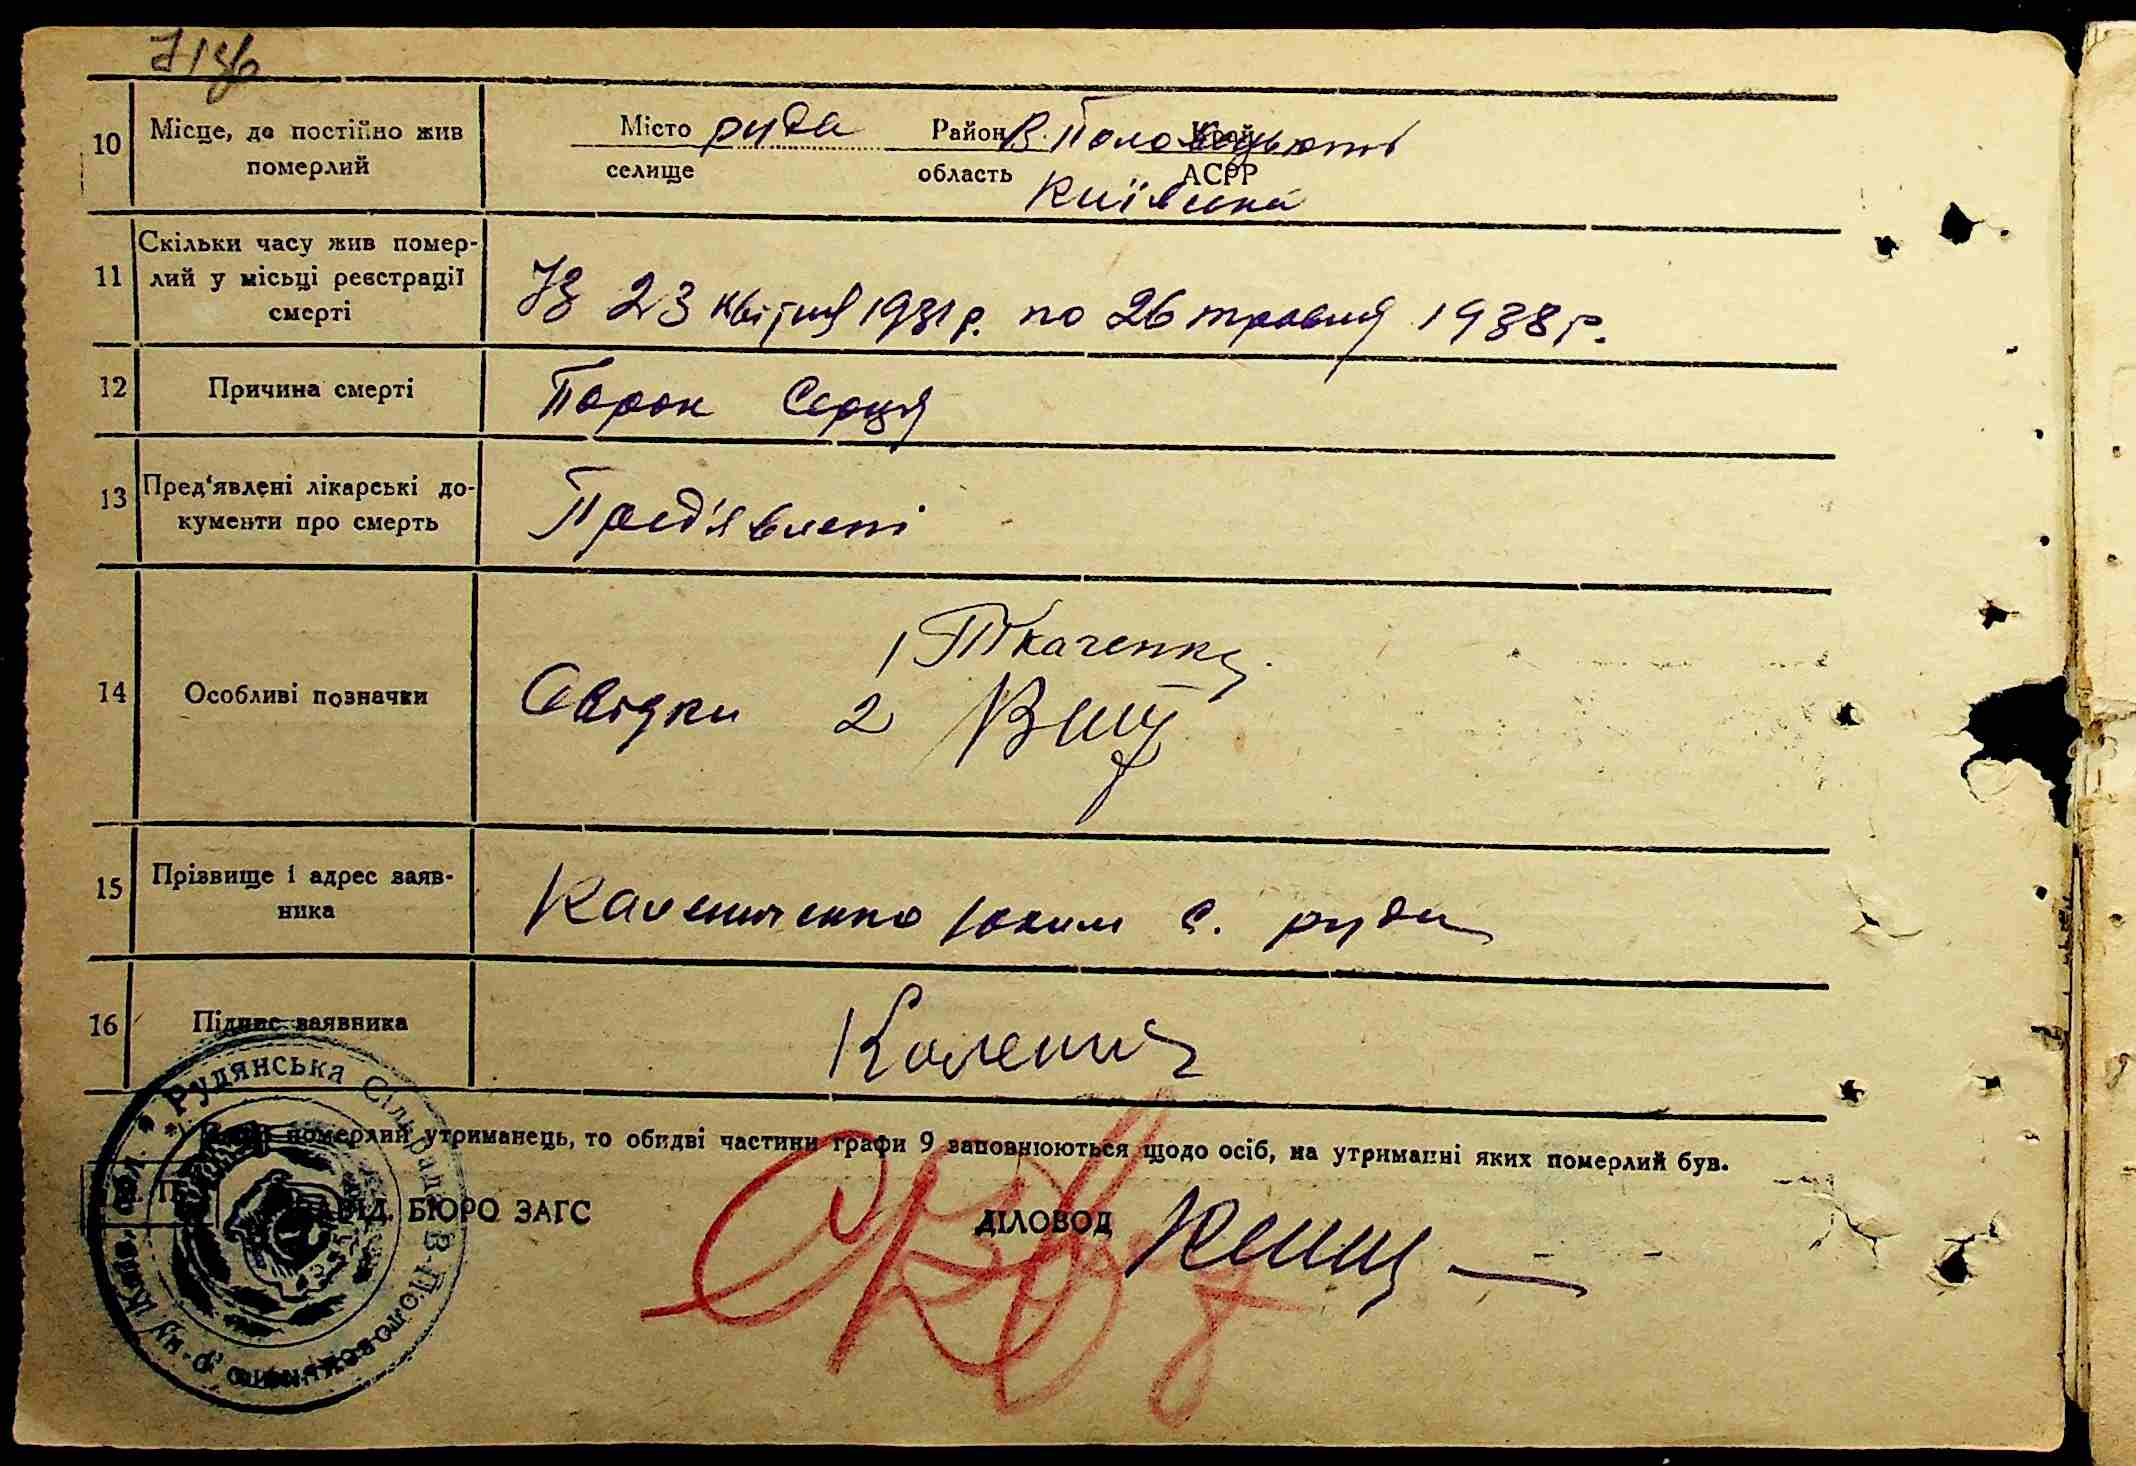 10 Місце, де постійно жив
померлий
Місто руда Район В. Половецький Край
селище область АСРР
Київська
11 Скільки часу жив помер-
лий у місьці реєстрації
смерті
Із 23 квітня 1931 р. по 26 травня 1938 р.
12 Причина смерті Порок Серця
13 Пред'явлені лікарські до-
кументи про смерть
Пред'явлені
14 Особливі позначки
1 Ткаченко
Свідки 2
15 Прізвище і адрес заяв-
ника
Калениченко Юхим с. руда
16 Підпис заявника
Каленич
померлий утриманець, то обидві частини графи 9 заповнюються щодо осіб, на утриманні яких померлий був.
ЗАВІД. БЮРО ЗАГС ДІЛОВОД
Рудянська Сільрада В Половецького р-ну Київ. обл.